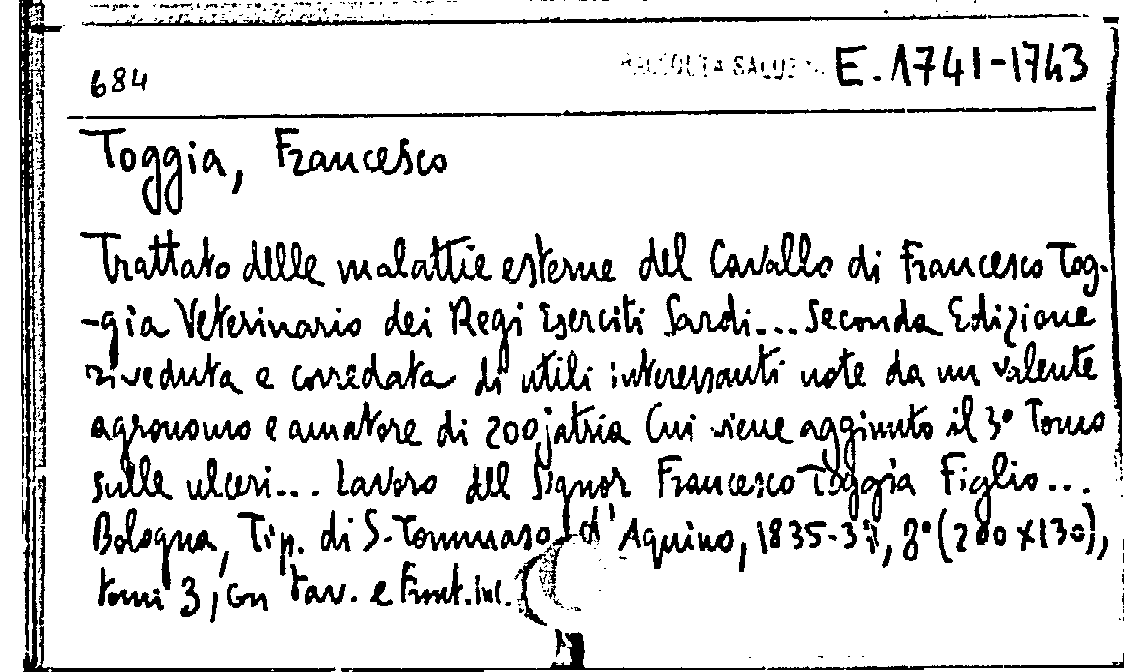 684 RACCOLTA SALUZZO E. 1741-1743
Toggia, Francesco
Trattato delle malattie esterne del Cavallo di Francesco Tog-
-gia Veterinario dei Regi Eserciti Sardi... Seconda Edizione
riveduta e corredata di utili interessanti note da un valente
agronomo e amatore di zoojatria Cui viene aggiunto il 3° Tomo
sulle ulceri... Lavoro del Signor Francesco Toggia Figlio...
Bologna, Tip. di S. Tommaso d'Aquino, 1835-37, 8° (200 x 130),
tomi 3, con tav. e front. inc.